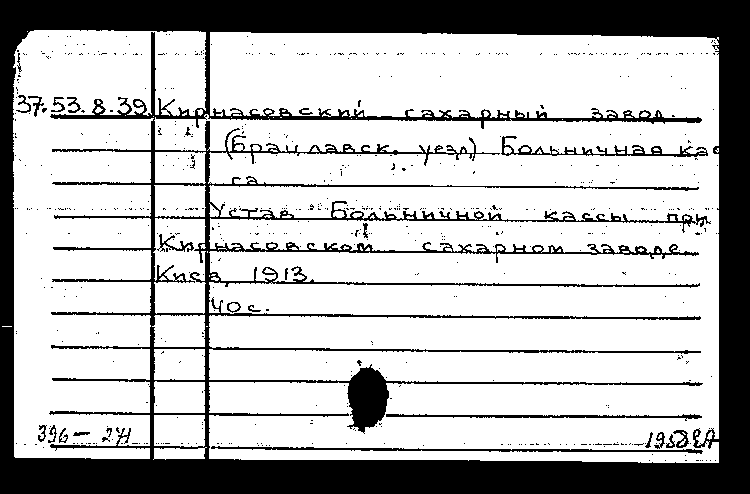 37.53.8.39. Кирнасовский сахарный завод.
(Брацлавск. уезд) Больничная кас
са.
Устав Больничной кассы при
Кирнасовском сахарном заводе.
Киев, 1913.
40 с.
396 — 271